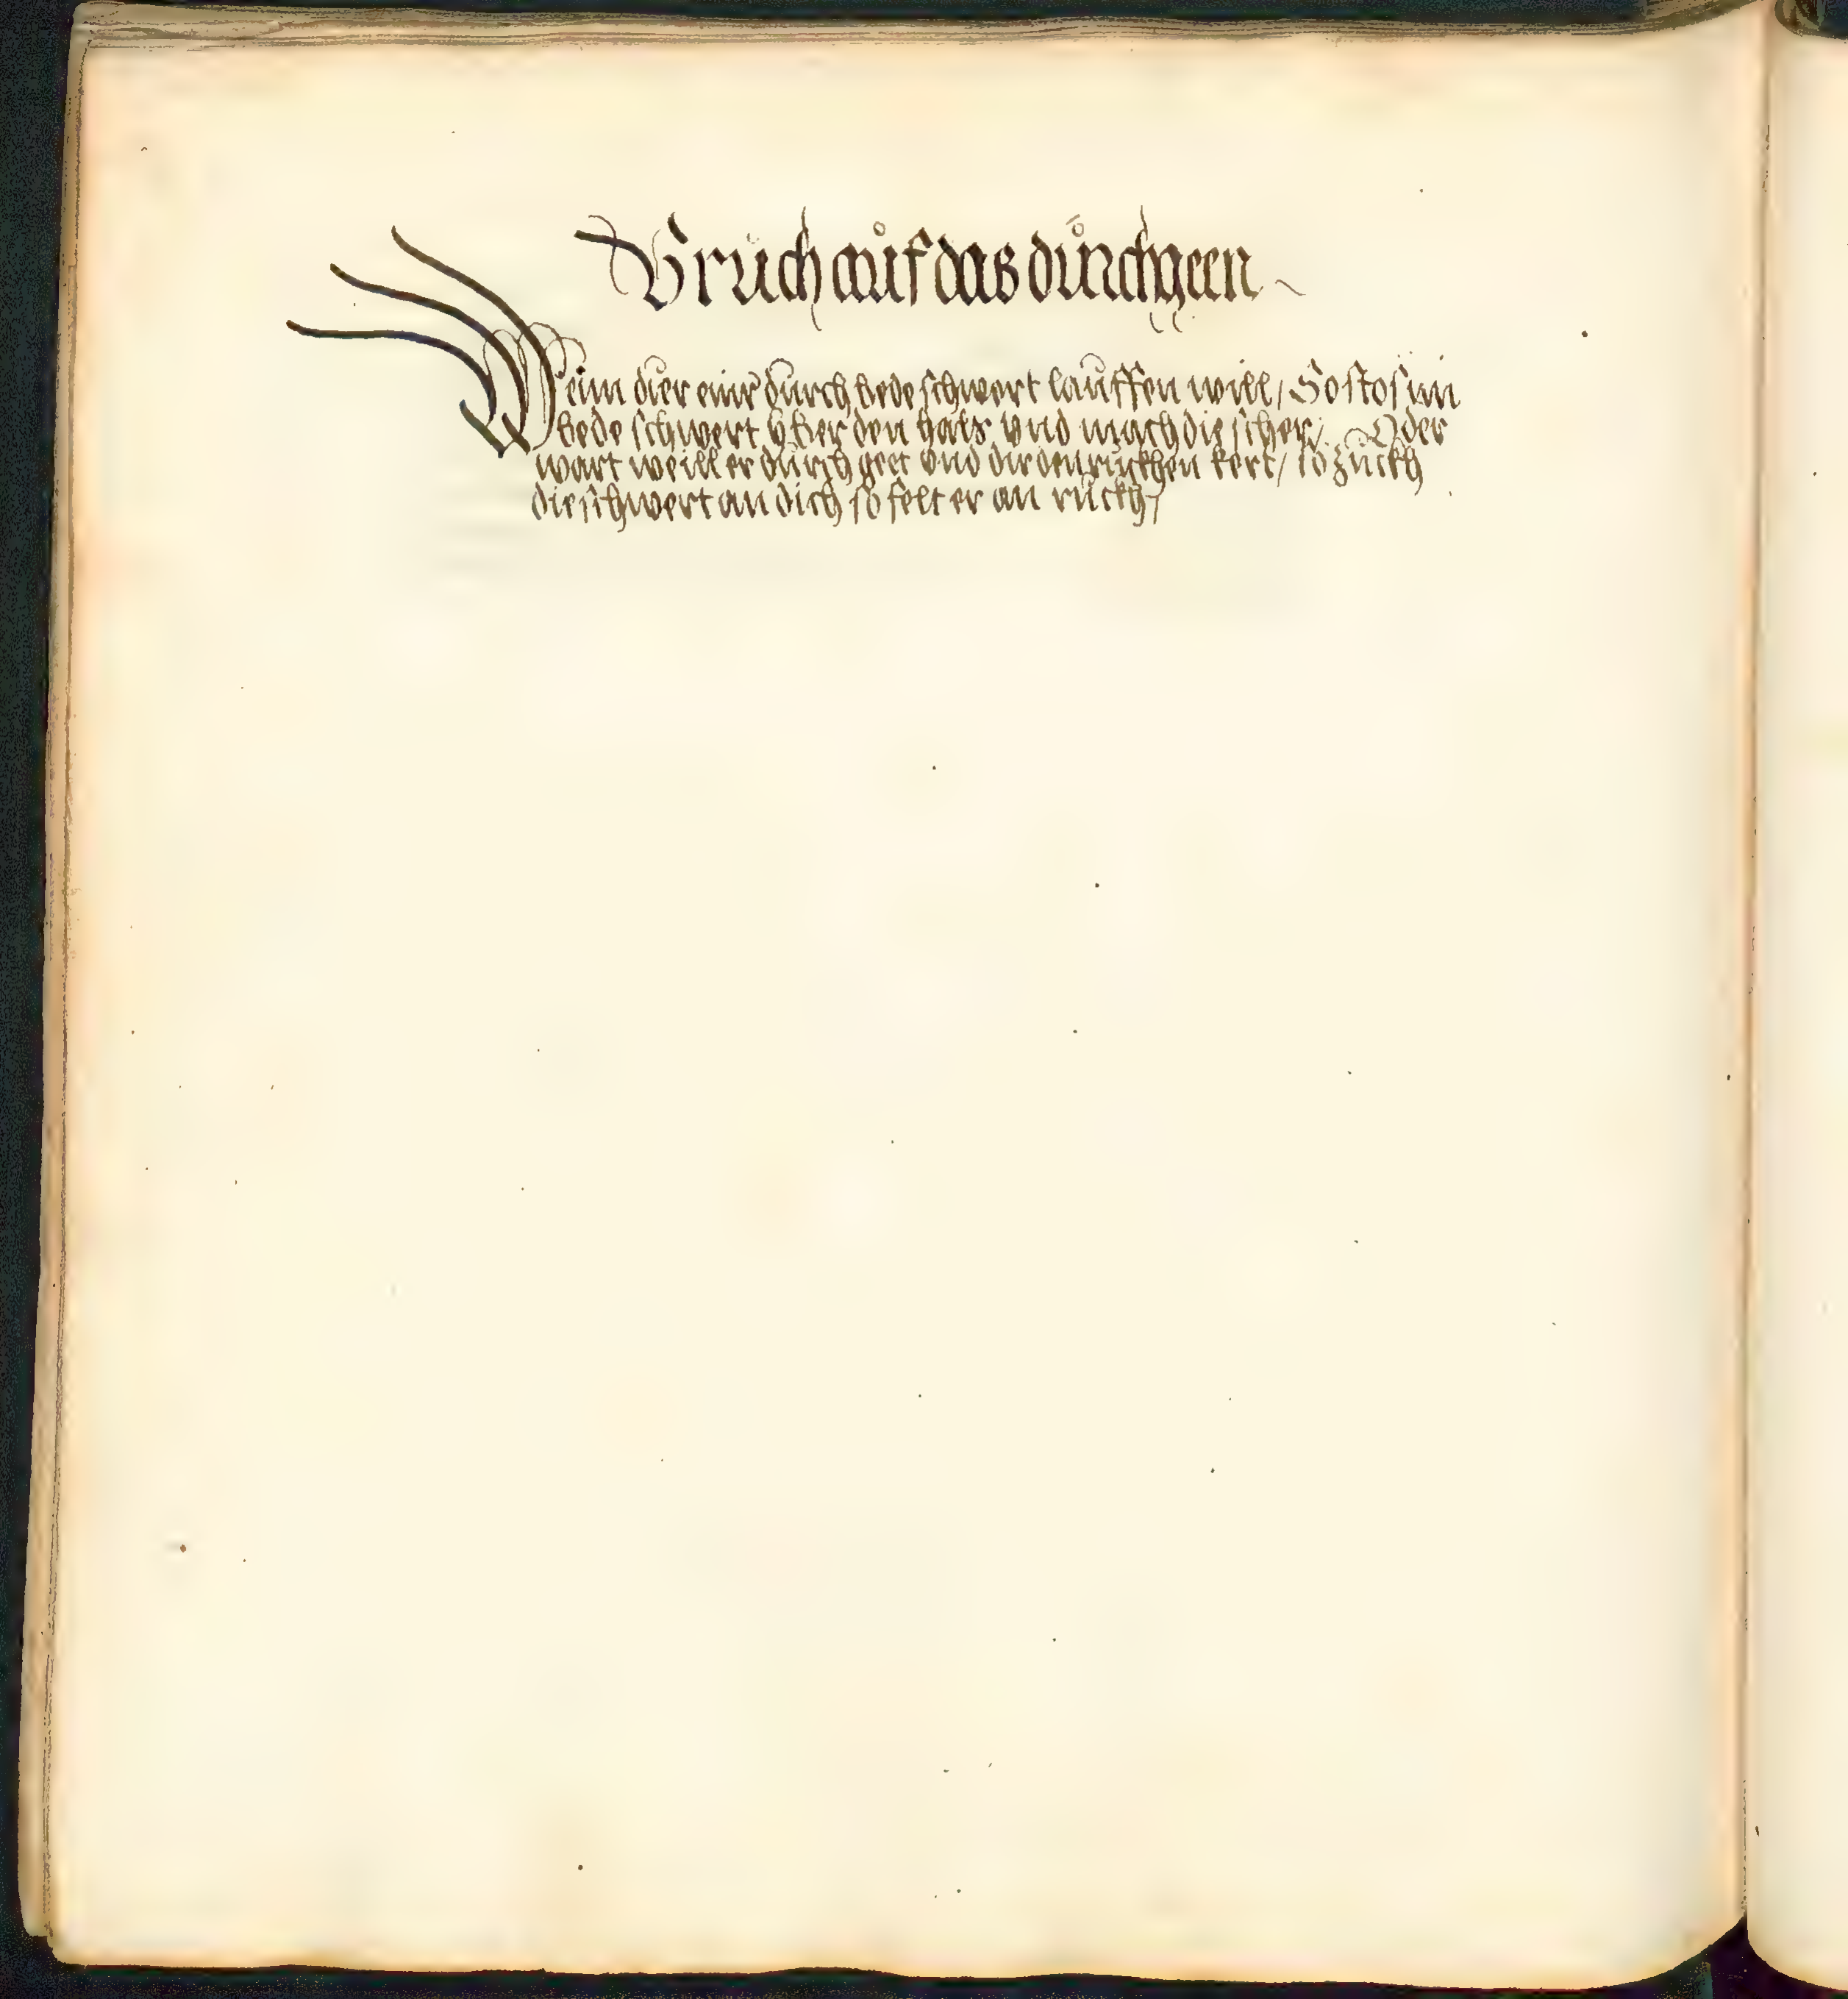 Bruch auf das durchgeen
Wenn dier einr durch bede schwert lauffen will / So stos im
bede schwert yber den hals vnd mach die scher / Oder
wart weill er durch geet vnd dir den ruckhen kert / so zuckh
die schwert an dich so felt er an ruckh /